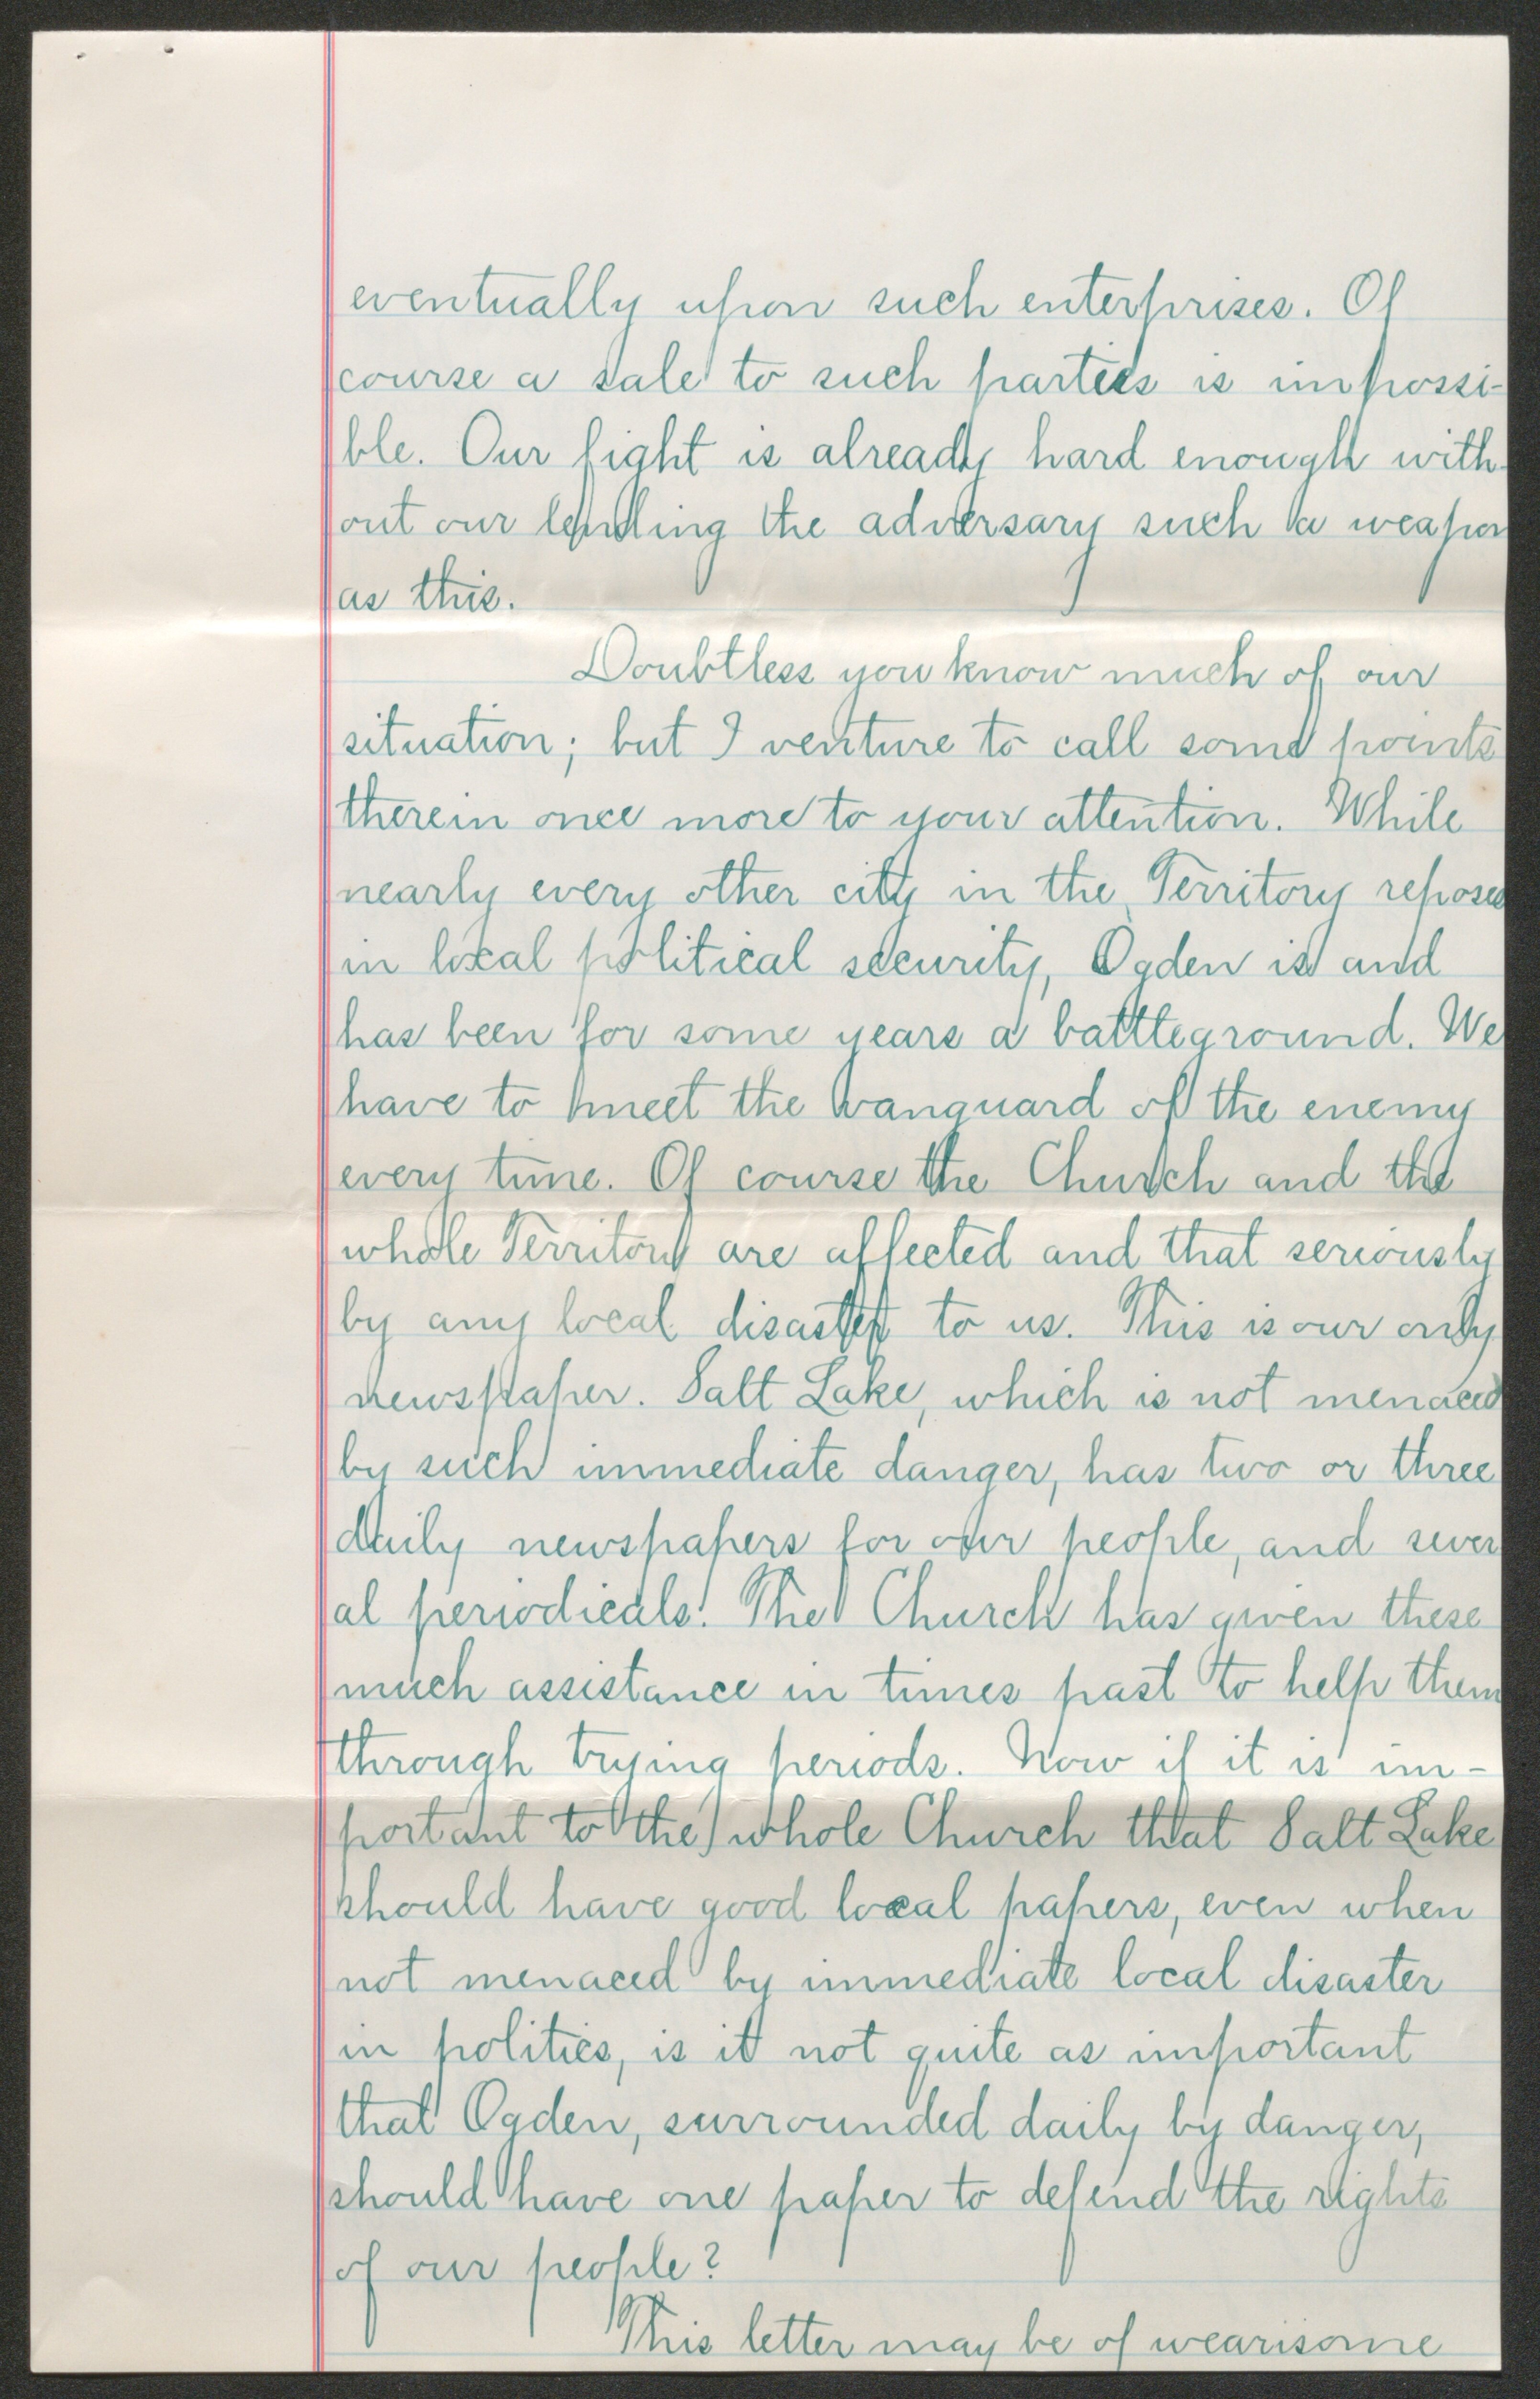 eventually upon such enterprises. Of
course a sale to such parties is impossi-
ble. Our fight is already hard enough with-
out our lending the adversary such a weapon
as this.
Doubtless you know much of our
situation; but I venture to call some points
therein once more to your attention. While
nearly every other city in the Territory reposes
in local political security, Ogden is and
has been for some years a battleground. We
have to meet the vanguard of the enemy
every time. Of course the Church and the
whole Territory are affected and that seriously
by any local disaster to us. This is our only
newspaper. Salt Lake, which is not menaced
by such immediate danger, has two or three
daily newspapers for our people, and sever
al periodicals. The Church has given these
much assistance in times past to help them
through trying periods. Now if it is im-
portant to the whole Church that Salt Lake
should have good local papers, even when
not menaced by immediate local disaster
in politics, is it not quite as important
that Ogden, surrounded daily by danger,
should have one paper to defend the rights
of our people?
This letter may be of wearisome